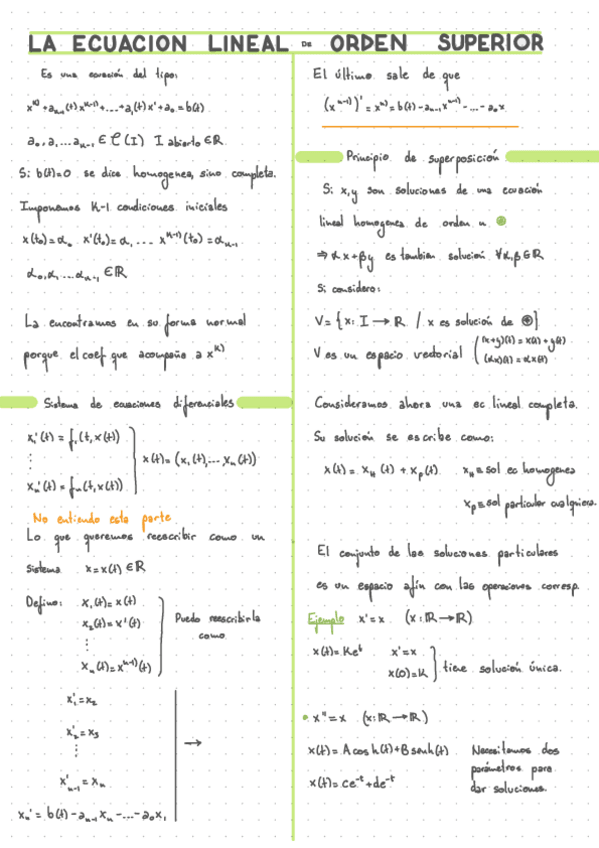 LA ECUACION LINEAL DE ORDEN SUPERIOR
Es una ecuación del tipo:
x^(k) + a_{k-1}(t) x^(k-1) + ... + a_1(t) x' + a_0 = b(t)
a_0, a_1 ... a_{k-1} ∈ C(I) I abierto ∈ ℝ
Si b(t)=0 se dice homogenea, sino completa.
Imponemos k-1 condiciones iniciales
x(t_0)=α_0 x'(t_0)=α_1 ... x^(k-1)(t_0)=α_{k-1}
α_0, α_1 ... α_{k-1} ∈ ℝ
La encontramos en su forma normal
porque el coef que acompaña a x^(k)
Sistema de ecuaciones diferenciales
x_1'(t) = f_1(t, x(t))
⋮ x(t) = (x_1(t), ... x_n(t))
x_n'(t) = f_n(t, x(t))
No entiendo esta parte
Lo que queremos reescribir como un
sistema x = x(t) ∈ ℝ
Defino: x_1(t) = x(t)
x_2(t) = x'(t)
⋮
x_n(t) = x^(n-1)(t)
Puedo reescribirla
como
x_1' = x_2
x_2' = x_3
⋮ →
x'_{n-1} = x_n
x_n' = b(t) - a_{n-1} x_n - ... - a_0 x_1
El último sale de que
(x^(n-1))' = x^(n) = b(t) - a_{n-1} x^(n-1) - ... - a_0 x
Principio de superposición
Si x, y son soluciones de una ecuación
lineal homogenea de orden n ⊕
⇒ αx + βy es tambien solución ∀α, β ∈ ℝ
Si considero:
V = {x: I → ℝ / x es solución de ⊕}
V es un espacio vectorial ( (x+y)(t) = x(t) + y(t)
(αx)(t) = αx(t)
Consideramos ahora una ec lineal completa.
Su solución se escribe como:
x(t) = x_H(t) + x_p(t) x_H ≡ sol ec homogenea
x_p ≡ sol particular cualquiera.
El conjunto de las soluciones particulares
es un espacio afín con las operaciones corresp.
Ejemplo x' = x (x: ℝ → ℝ)
x(t) = Ke^t x' = x
x(0) = K } tiene solución única.
• x'' = x (x: ℝ → ℝ)
x(t) = A cosh(t) + B senh(t)
x(t) = ce^{-t} + de^{-t}
Necesitamos dos
parámetros para
dar soluciones.